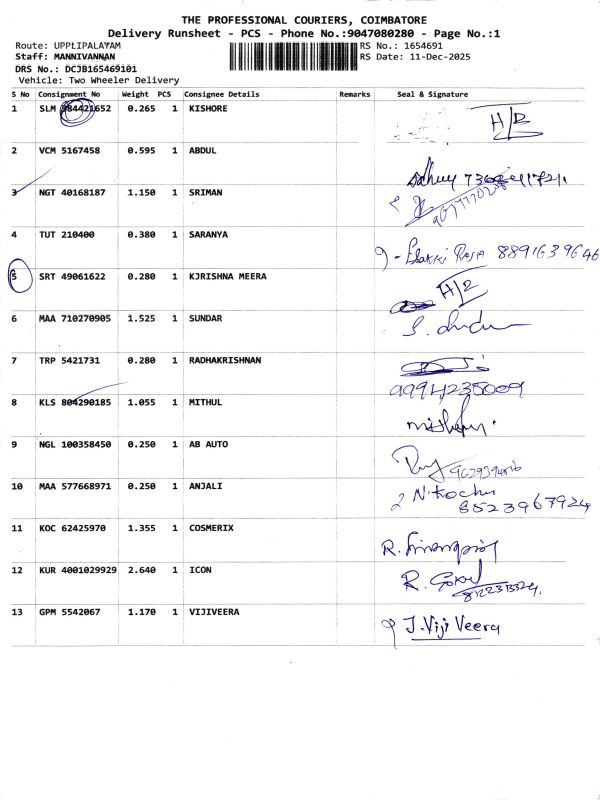 THE PROFESSIONAL COURIERS, COIMBATORE
Delivery Runsheet - PCS - Phone No.:9047080280 - Page No.:1
Route: UPPLIPALAYAM RS No.: 1654691
Staff: MANNIVANNAN RS Date: 11-Dec-2025
DRS No.: DCJB165469101
Vehicle: Two Wheeler Delivery
S No Consignment No Weight PCS Consignee Details Remarks Seal & Signature
1 SLM 984421652 0.265 1 KISHORE H/R
2 VCM 5167458 0.595 1 ABDUL
3 NGT 40168187 1.150 1 SRIMAN
4 TUT 210400 0.380 1 SARANYA Esakki Raja 8891639646
5 SRT 49061622 0.280 1 KJRISHNA MEERA H/R
6 MAA 710270905 1.525 1 SUNDAR
7 TRP 5421731 0.280 1 RADHAKRISHNAN
9994235009
8 KLS 804290185 1.055 1 MITHUL
9 NGL 100358450 0.250 1 AB AUTO
10 MAA 577668971 0.250 1 ANJALI N.Kochu
8523967924
11 KOC 62425970 1.355 1 COSMERIX
12 KUR 4001029929 2.640 1 ICON R. Gokul
13 GPM 5542067 1.170 1 VIJIVEERA J.Viji Veera